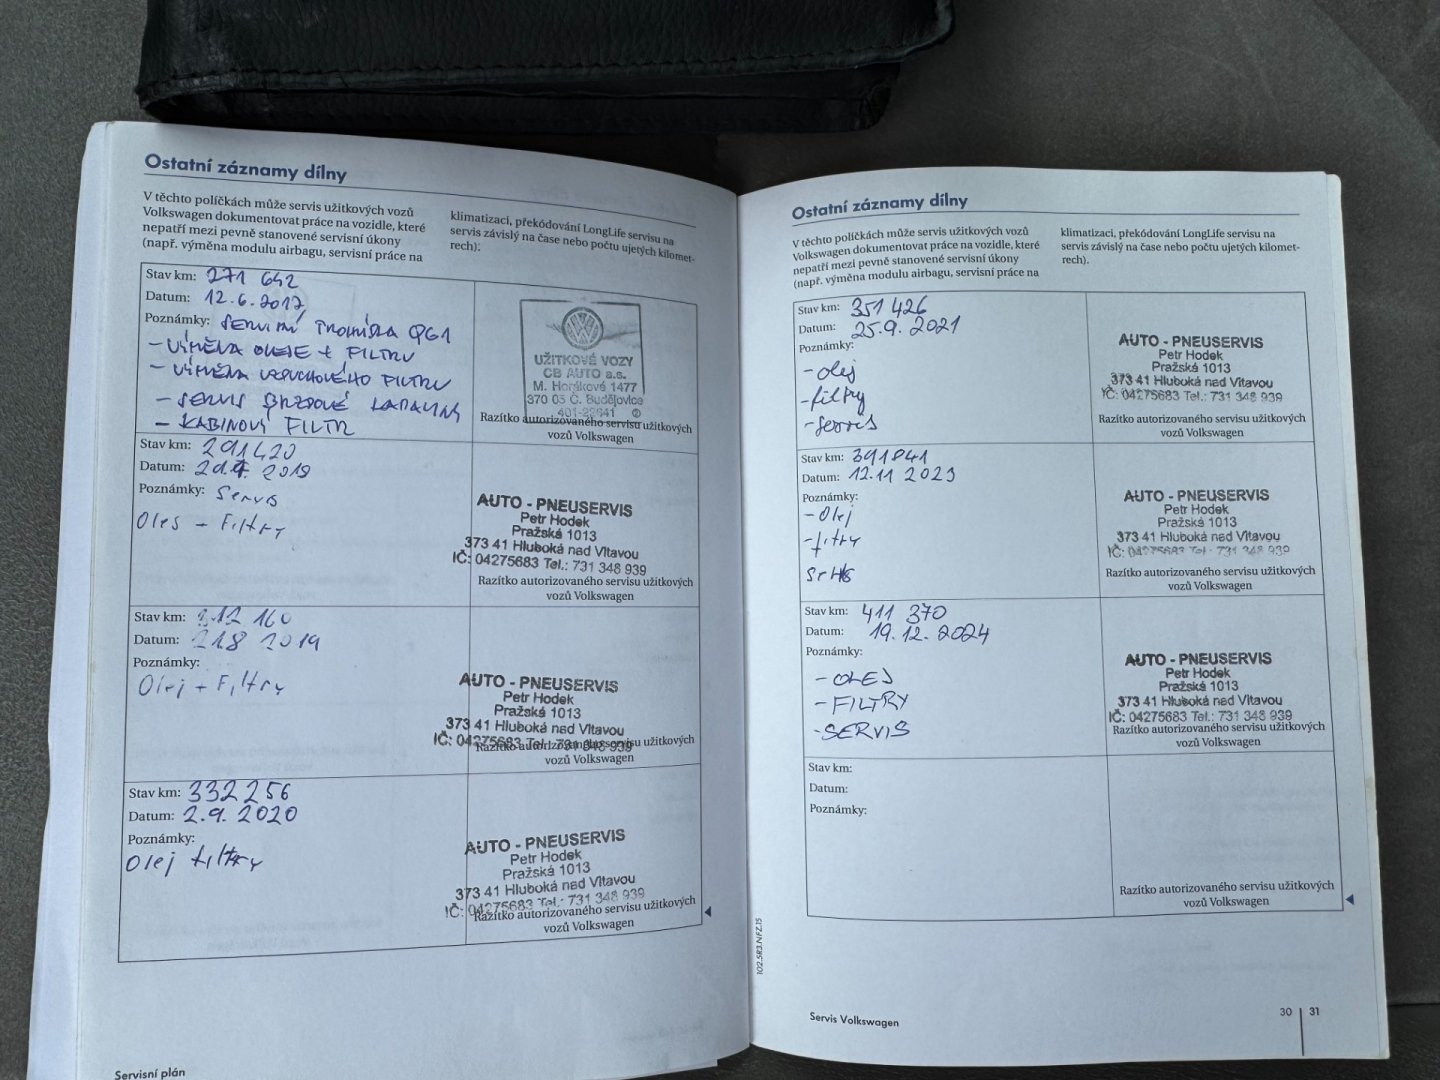 Ostatní záznamy dílny
V těchto políčkách může servis užitkových vozů
Volkswagen dokumentovat práce na vozidle, které
nepatří mezi pevně stanovené servisní úkony
(např. výměna modulu airbag, servisní práce na
klimatizaci, překódování LongLife servisu na
servis závislý na čase nebo počtu ujetých kilomet-
rech).
Stav km: 271 642
Datum: 12.6.2017
Poznámky: SERVISNÍ PROHLÍDKA QG1
- VÝMĚNA OLEJE + FILTRU
- VÝMĚNA VZDUCHOVÉHO FILTRU
- SERVIS BRZDOVÉ KAPALINY
- KABINOVÝ FILTR
UŽITKOVÉ VOZY
CB AUTO a.s.
M. Horákové 1477
370 05 Č. Budějovice
401-22641 2
Razítko autorizovaného servisu užitkových
vozů Volkswagen
Stav km: 291420
Datum: 2019
Poznámky: Servis
Olej - Filtry
AUTO - PNEUSERVIS
Petr Hodek
Pražská 1013
373 41 Hluboká nad Vltavou
IČ: 04275683 Tel.: 731 348 939
Razítko autorizovaného servisu užitkových
vozů Volkswagen
Stav km: 312 160
Datum: 21.8 2019
Poznámky:
Olej + Filtry
AUTO - PNEUSERVIS
Petr Hodek
Pražská 1013
373 41 Hluboká nad Vltavou
IČ: 04275683 Tel.: 731 348 939
Razítko autorizovaného servisu užitkových
vozů Volkswagen
Stav km: 332 256
Datum: 2.9.2020
Poznámky:
Olej filtry
AUTO - PNEUSERVIS
Petr Hodek
Pražská 1013
373 41 Hluboká nad Vltavou
IČ: 04275683 Tel.: 731 348 939
Razítko autorizovaného servisu užitkových
vozů Volkswagen
Servisní plán
Ostatní záznamy dílny
V těchto políčkách může servis užitkových vozů
Volkswagen dokumentovat práce na vozidle, které
nepatří mezi pevně stanovené servisní úkony
(např. výměna modulu airbagu, servisní práce na
klimatizaci, překódování LongLife servisu na
servis závislý na čase nebo počtu ujetých kilomet-
rech).
Stav km: 351 426
Datum: 25.9. 2021
Poznámky:
- olej
- filtry
- servis
AUTO - PNEUSERVIS
Petr Hodek
Pražská 1013
373 41 Hluboká nad Vltavou
IČ: 04275683 Tel.: 731 348 939
Razítko autorizovaného servisu užitkových
vozů Volkswagen
Stav km: 391841
Datum: 12.11 2023
Poznámky:
- Olej
- fitry
AUTO - PNEUSERVIS
Petr Hodek
Pražská 1013
373 41 Hluboká nad Vltavou
IČ: 04275683 Tel.: 731 348 939
Razítko autorizovaného servisu užitkových
vozů Volkswagen
Stav km: 411 370
Datum: 19. 12. 2024
Poznámky:
- OLEJ
- FILTRY
- SERVIS
AUTO - PNEUSERVIS
Petr Hodek
Pražská 1013
373 41 Hluboká nad Vltavou
IČ: 04275683 Tel.: 731 348 939
Razítko autorizovaného servisu užitkových
vozů Volkswagen
Stav km:
Datum:
Poznámky:
Razítko autorizovaného servisu užitkových
vozů Volkswagen
102.5R3.NFZ.15
Servis Volkswagen
30 31